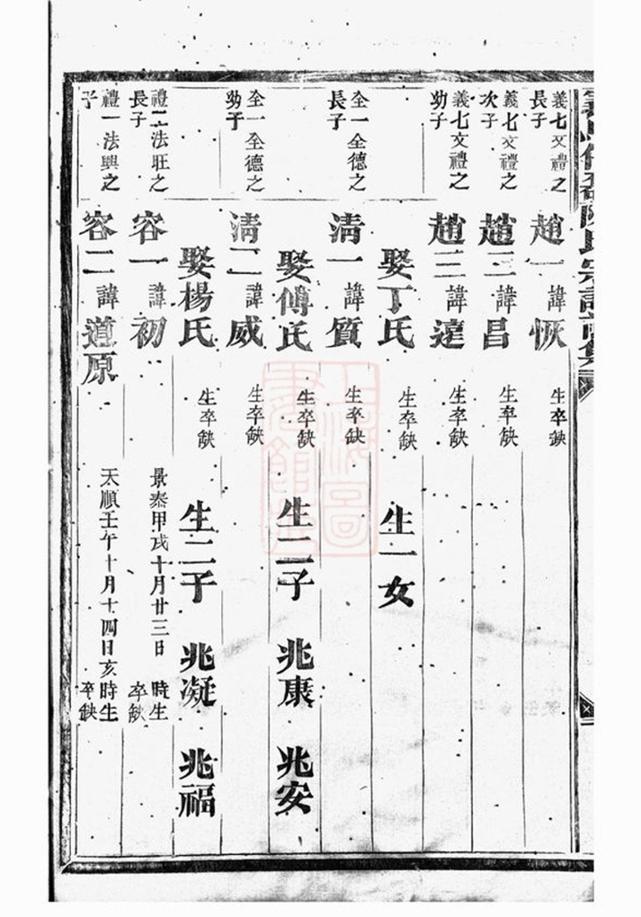 陳氏宗譜
義七文禮之
長子
趙一諱恢 生卒缼
義七文禮之
次子
趙二諱昌 生卒缼
義七文禮之
幼子
趙三諱達 生卒缼
娶丁氏 生卒缼 生一女
全一全德之
長子
清一諱質 生卒缼
娶傅氏 生卒缼 生二子 兆康 兆安
全一全德之
幼子
清二諱威 生卒缼
娶楊氏 生卒缼 生二子 兆凝 兆福
禮一法旺之
長子
容一諱初 景泰甲戌十月廿三日 時生
卒缼
禮一法興之
子
容二諱道原 天順壬午十月十四日亥時生
卒缼
上海圖
書館藏